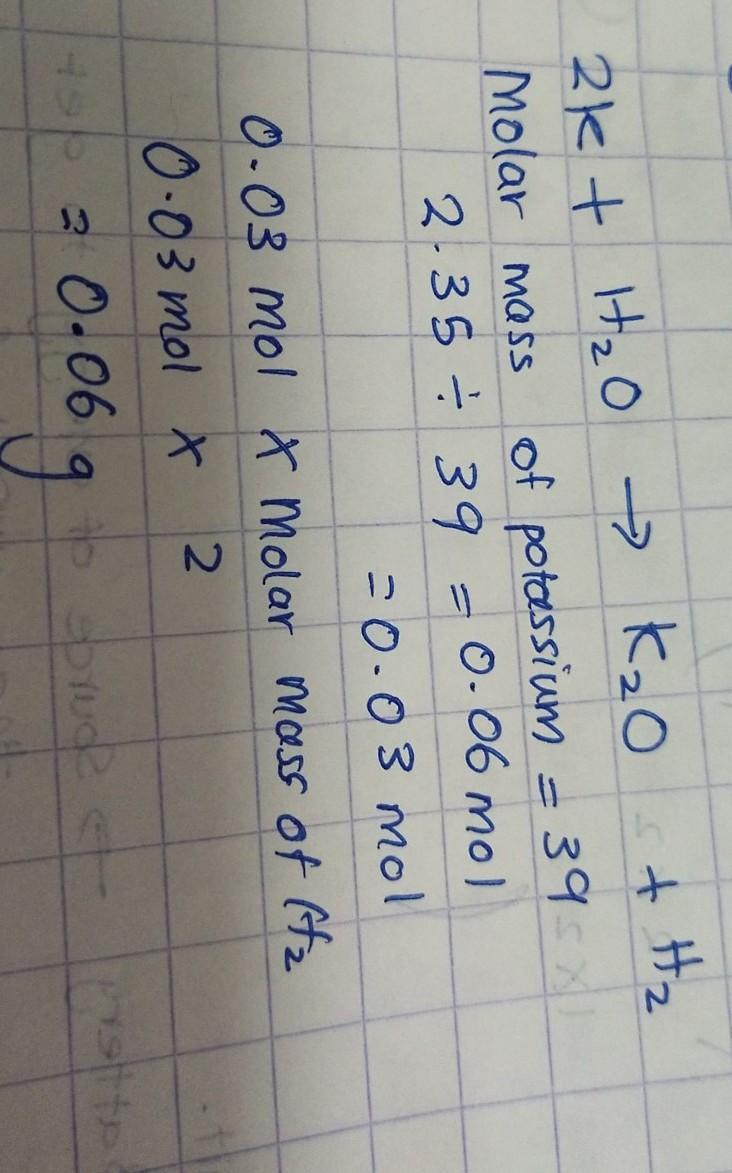 2K + H₂O → K₂O + H₂
Molar mass of potassium = 39
2.35 ÷ 39 = 0.06 mol
= 0.03 mol
0.03 mol x Molar mass of H₂
0.03 mol x 2
= 0.06 g